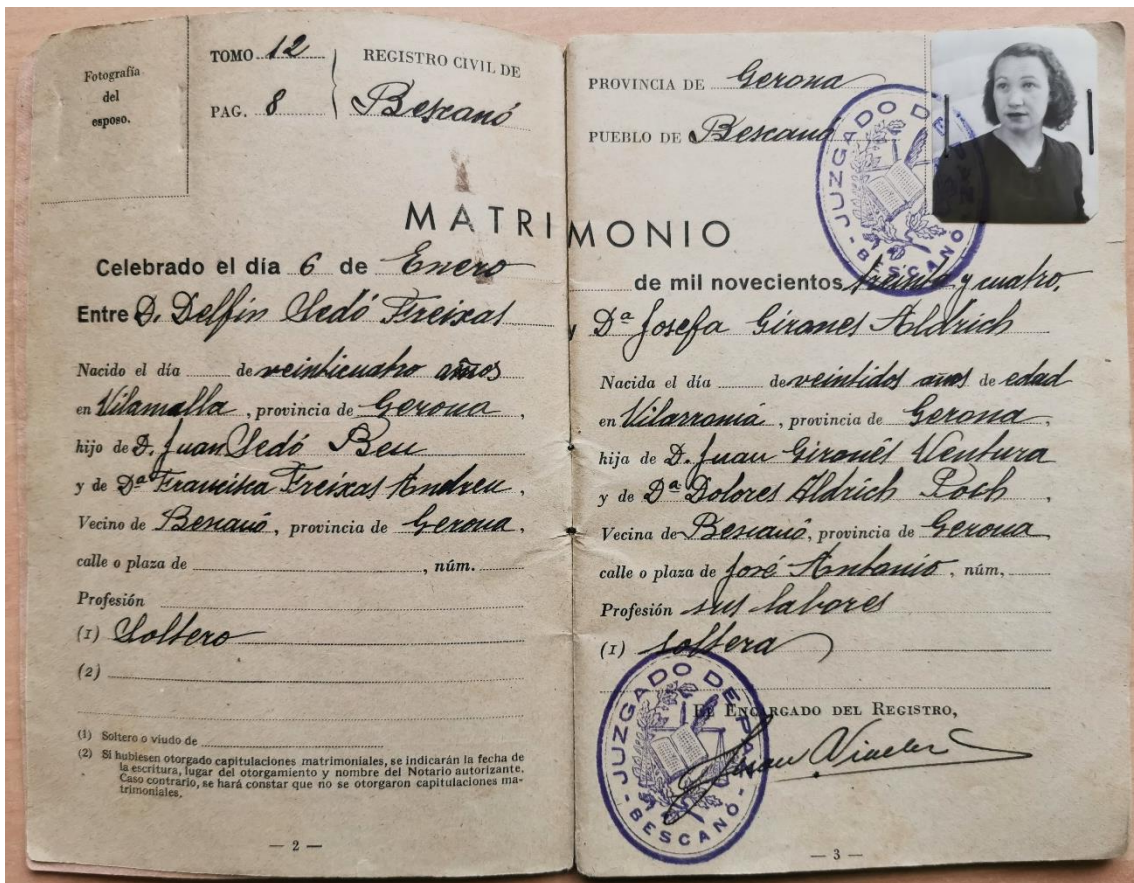 Fotografía
del
esposo.
TOMO 12
PAG. 8
REGISTRO CIVIL DE
Bescanó
MATRIMONIO
Celebrado el día 6 de Enero
Entre D. Delfín Sedó Freixas
Nacido el día de veinticuatro años
en Vilamalla, provincia de Gerona,
hijo de D. Juan Sedó Beu
y de Dª Francisca Freixas Andreu,
Vecino de Bescanó, provincia de Gerona,
calle o plaza de , núm.
Profesión
(1) Soltero
(2)
(1) Soltero o viudo de
(2) Si hubiesen otorgado capitulaciones matrimoniales, se indicarán la fecha de
la escritura, lugar del otorgamiento y nombre del Notario autorizante.
Caso contrario, se hará constar que no se otorgaron capitulaciones ma-
trimoniales.
— 2 —
PROVINCIA DE Gerona
PUEBLO DE Bescanó
JUZGADO DE PAZ
- BESCANÓ -
de mil novecientos treinta y cuatro.
y Dª Josefa Gironés Aldrich
Nacida el día de veintidos años de edad
en Vilarromá, provincia de Gerona,
hija de D. Juan Gironés Ventura
y de Dª Dolores Aldrich Poch,
Vecina de Bescanó, provincia de Gerona
calle o plaza de José Antonio, núm.
Profesión sus labores
(1) soltera
EL ENCARGADO DEL REGISTRO,
Juan
JUZGADO DE PAZ
- BESCANÓ -
— 3 —